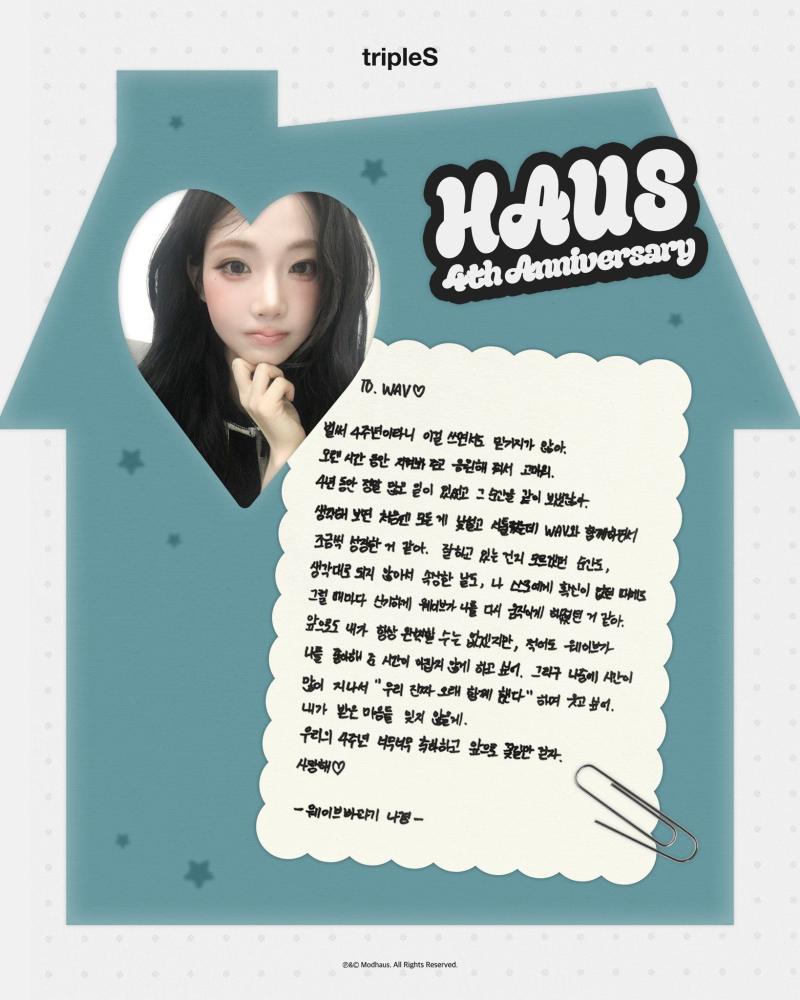 tripleS
HAUS
4th Anniversary
TO. WAV♡
벌써 4주년이라니 이걸 쓰면서도 믿기지가 않아.
오랜 시간 동안 지켜봐 주고 응원해 줘서 고마워.
4년 동안 정말 많은 일이 있었고 그 순간을 같이 보냈잖아.
생각해 보면 처음엔 모든 게 낯설고 서툴렀는데 WAV와 함께하면서
조금씩 성장한 거 같아. 잘하고 있는 건지 모르겠던 순간도,
생각대로 되지 않아서 속상한 날도, 나 스스로에게 확신이 없던 때에도
그럴 때마다 신기하게 웨이브가 나를 다시 움직이게 해줬던 거 같아.
앞으로도 내가 항상 완벽할 수는 없겠지만, 적어도 웨이브가
나를 좋아해 준 시간이 아깝지 않게 하고 싶어. 그리구 나중에 시간이
많이 지나서 "우리 진짜 오래 함께 했다" 하며 웃고 싶어.
내가 받은 마음들 잊지 않을게.
우리의 4주년 너무너무 축하하고 앞으로 꽃길만 걷자.
사랑해♡
- 웨이브바라기 나경 -
℗&© Modhaus. All Rights Reserved.